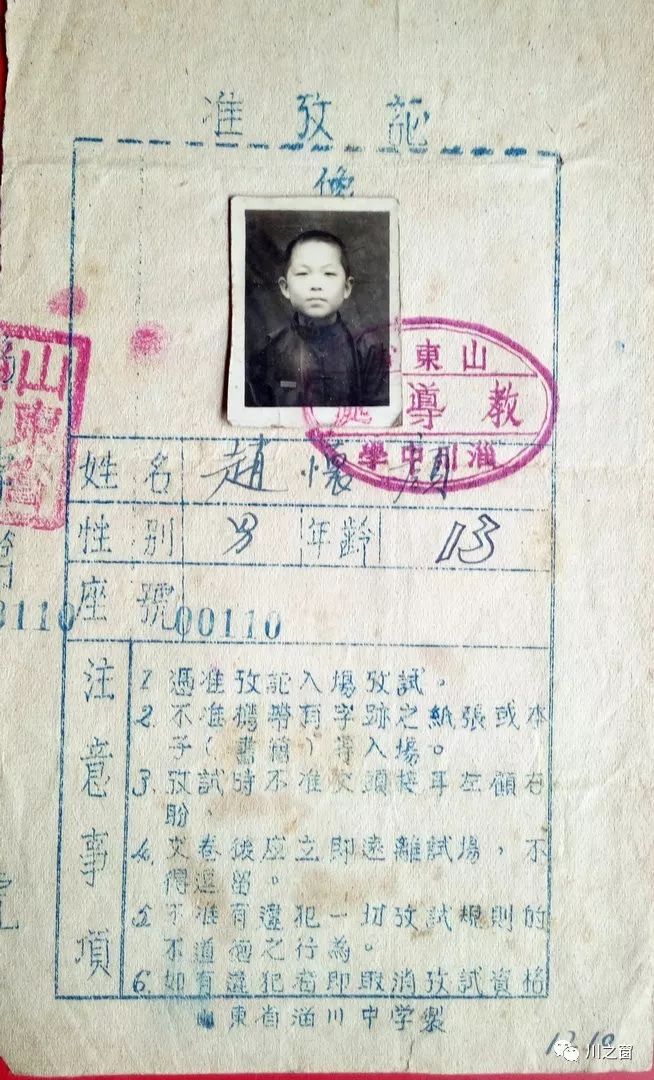 准攷証
像
山東省
教導處
淄川中學
山東省
姓名 趙懷顏
性别 男 年齡 13
座號 00110
3110
注意事項
1 憑准攷証入場攷試。
2. 不准攜帶有字跡之紙張或本
子(書籍)等入場。
3. 攷試時不准交頭接耳左顧右
盼。
4. 交卷後应立即遠離試場,不
得逗留。
5 不准有違犯一切攷試規則的
不道德之行為。
6. 如有違犯者即取消攷試資格
山東省淄川中学製
12.18
川之窗